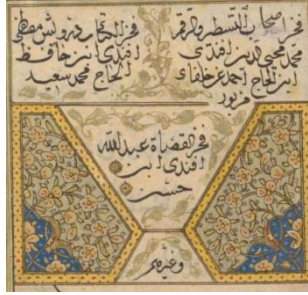 فخر اصحاب التسطير والرقم
محمد محيي الدين افندى
ابن الحاج احمد
مزبور
فخر درويش مصطفى
افندى ابن حافظ
الحاج محمد سعيد
فخر القضاة عبد الله
افندى ابن
حسن
وغيرهم